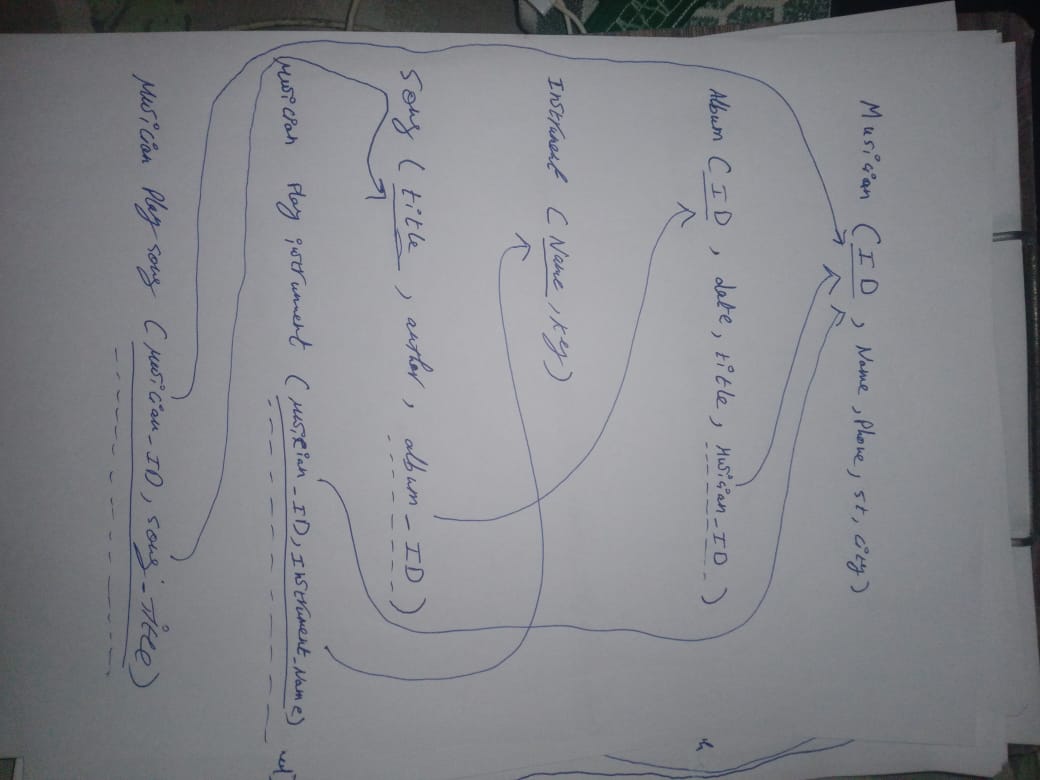 Musician (ID, Name, Phone, st, city)
Album (ID, date, title, Musician_ID)
Instrument (Name, key)
Song (title, author, album_ID)
Musician Play instrument (Musician_ID, Instrument_Name)
Musician Play song (Musician_ID, song_Title)